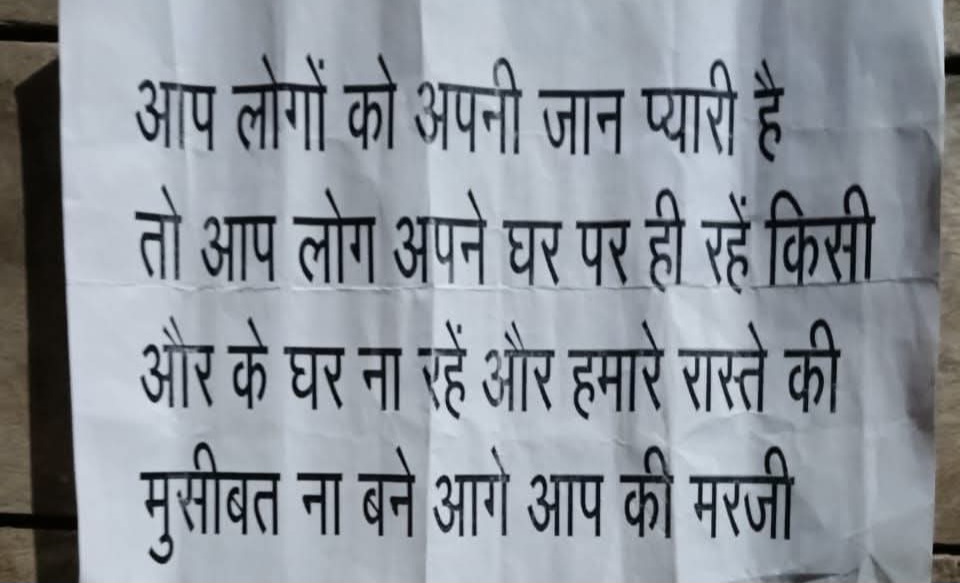 आप लोगों को अपनी जान प्यारी है
तो आप लोग अपने घर पर ही रहें किसी
और के घर ना रहें और हमारे रास्ते की
मुसीबत ना बने आगे आप की मरजी